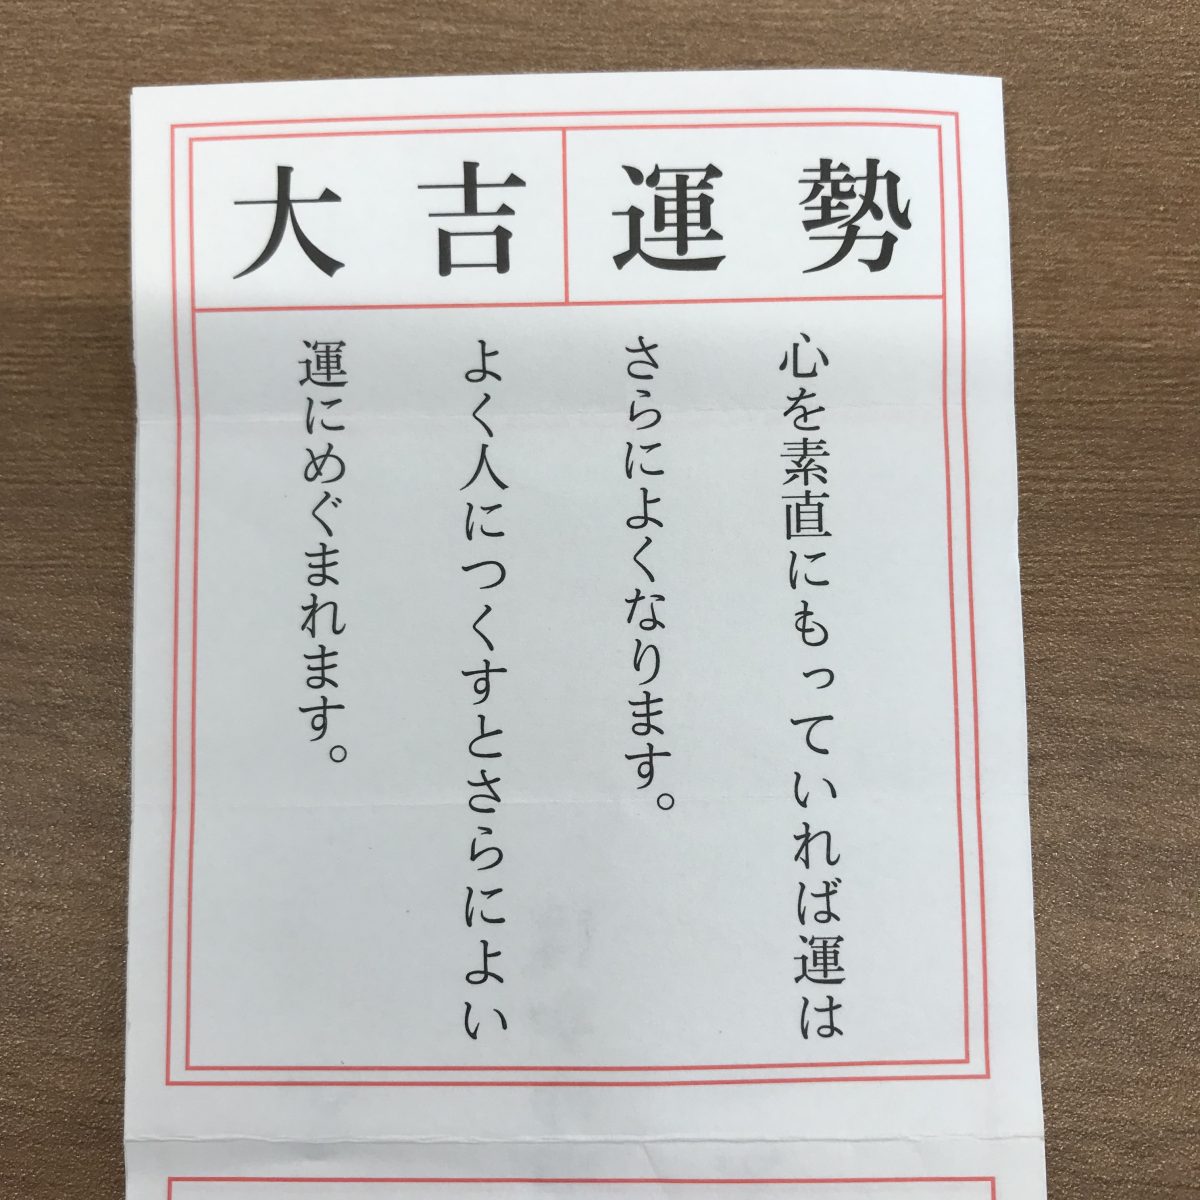 大吉 運勢
心を素直にもっていれば運は
さらによくなります。
よく人につくすとさらによい
運にめぐまれます。